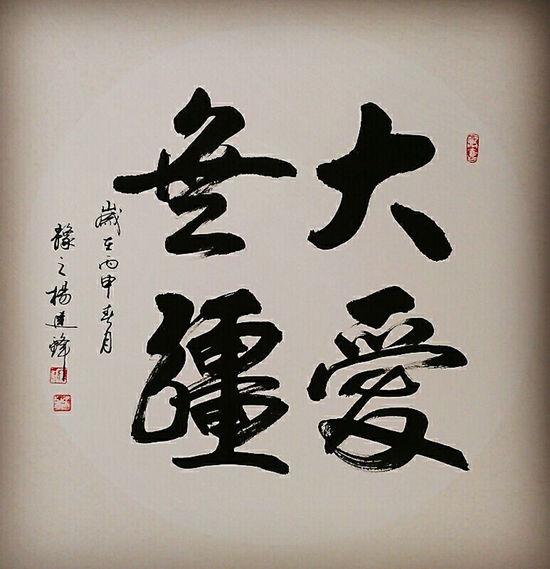 大愛
無疆
歲在丙申春月
豫之楊建鋒